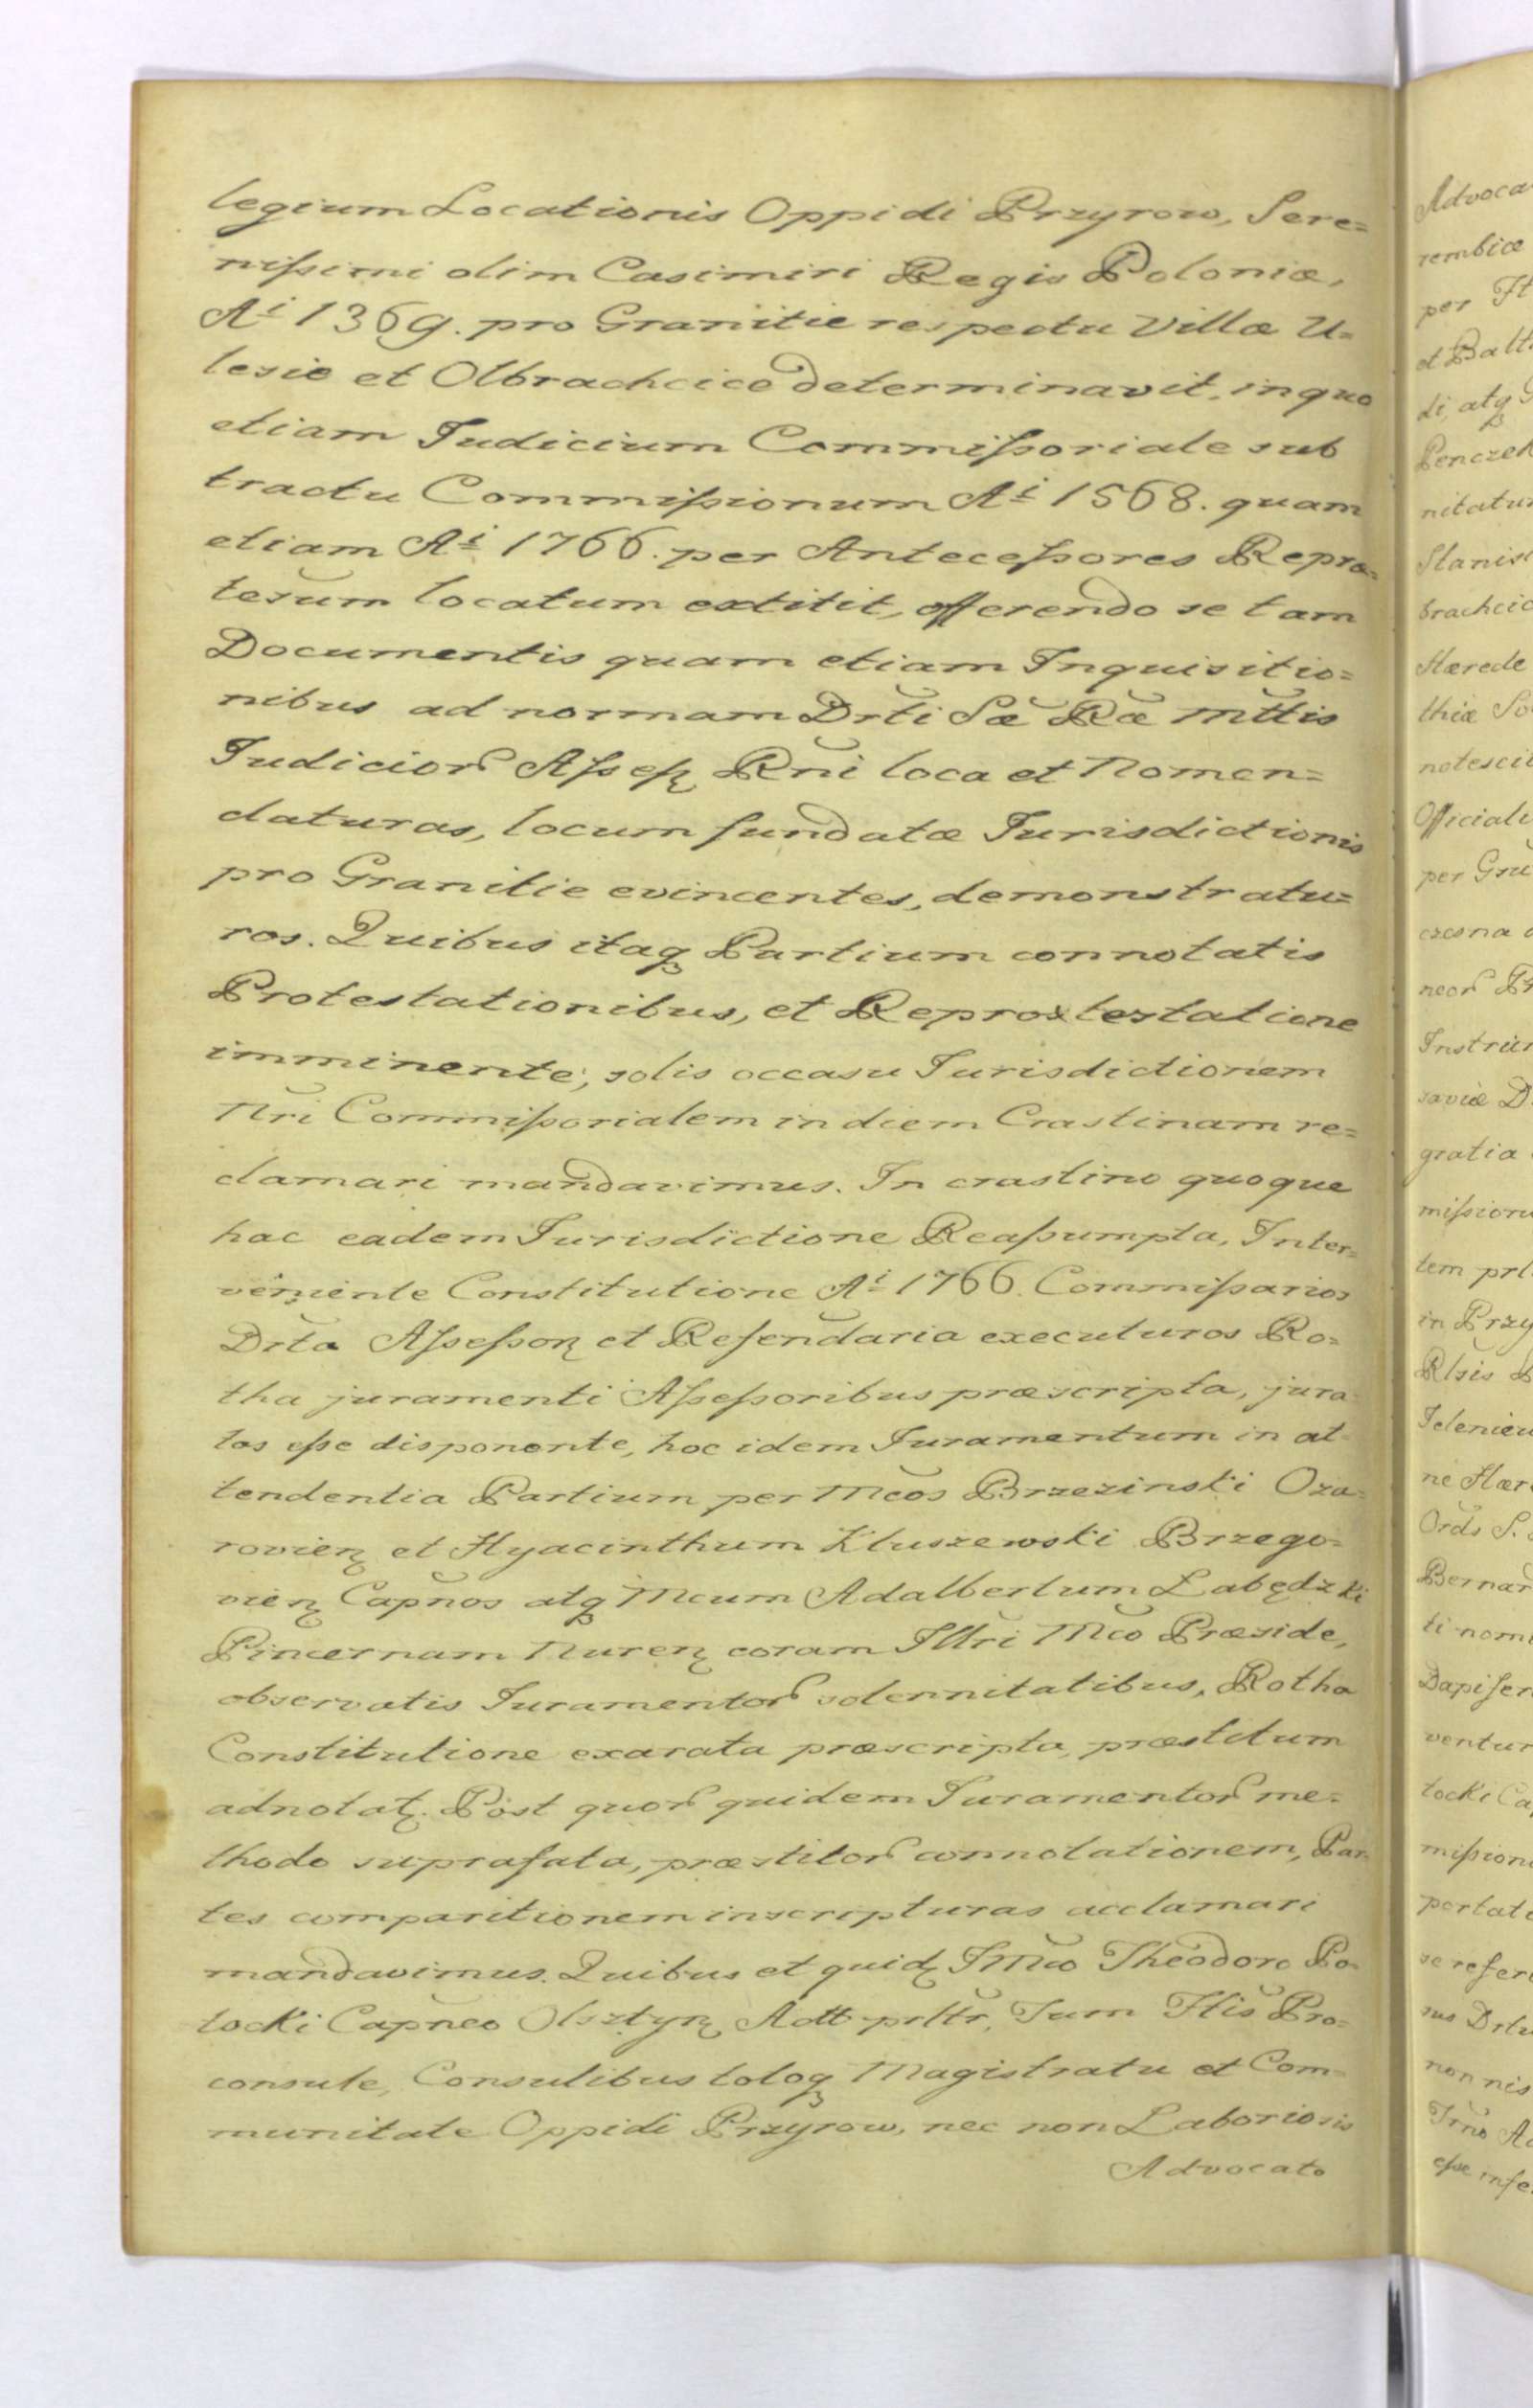 legium Locationis Oppidi Przyrow, Sere=
nissimi olim Casimiri Regis Poloniæ,
Aı̱ 1369. pro Granitie respectu Villæ U=
lesie et Olbrachcice determinavit, in quo
etiam Judicium Commissoriale sub
tractu Commissionum Aı̱ 1568. quam
etiam Aı̱ 1766. per Antecessores Repro=
tesum locatum extitit, offerendo se tam
Documentis quam etiam Inquisitio=
nibus ad normam Drti Sæ Ræ Mttis
Judicior Assesz Rni loca et Nomen=
claturas, locum fundatæ Jurisdictionis
pro Granitie evincentes, demonstratu=
ros. Quibus itaq Partium connotatis
Protestationibus, et Reprotestatione
imminente, solis occasu Jurisdictionem
Nri Commissorialem in diem Crastinam re=
clamari mandavimus. In crastino quoque
hac eadem Jurisdictione Reassumpta, Inter=
veniente Constitutione Aı̱ 1766. Commissarios
Drta Assessorz et Referendaria executuros Ro=
tha juramenti Assessoribus præscripta, jura
tos esse disponente, hoc idem Juramentum in at
tendentia Partium per Mcos Brzezinski Oza=
rovienz et Hyacinthum Kluszewski Brzego=
vienz Capnos atq Mcum Adalbertum Łabędzki
Pincernam Nurenz coram Illri Mco Præside,
observatis Juramentor solennitatibus, Rotha
Constitutione exarata præscripta, præstitum
adnotatz. Post quor quidem Juramentor me=
thodo suprafata, præstitor connotationem, Par
tes comparitionem inscripturas acclamari
mandavimus. Quibus et quidz JMco Theodoro Po=
tocki Capneo Olsztynz Actt prltr, Tum Flis Pro=
consule, Consulibus totoq Magistratu et Com=
munitate Oppidi Przyrow, nec non Laboriosis
Advocato
Advoca
rembiæ
per
et Balt
di, atq
Penczel
nitatu
Stanis
brachcic
Hærede
thiæ
notescit
Officiale
per
neor
gratia
in Przy
Bernar
Dapifer
ventur
tocki Ca
mission
portat
se refer
non nis
esse infe